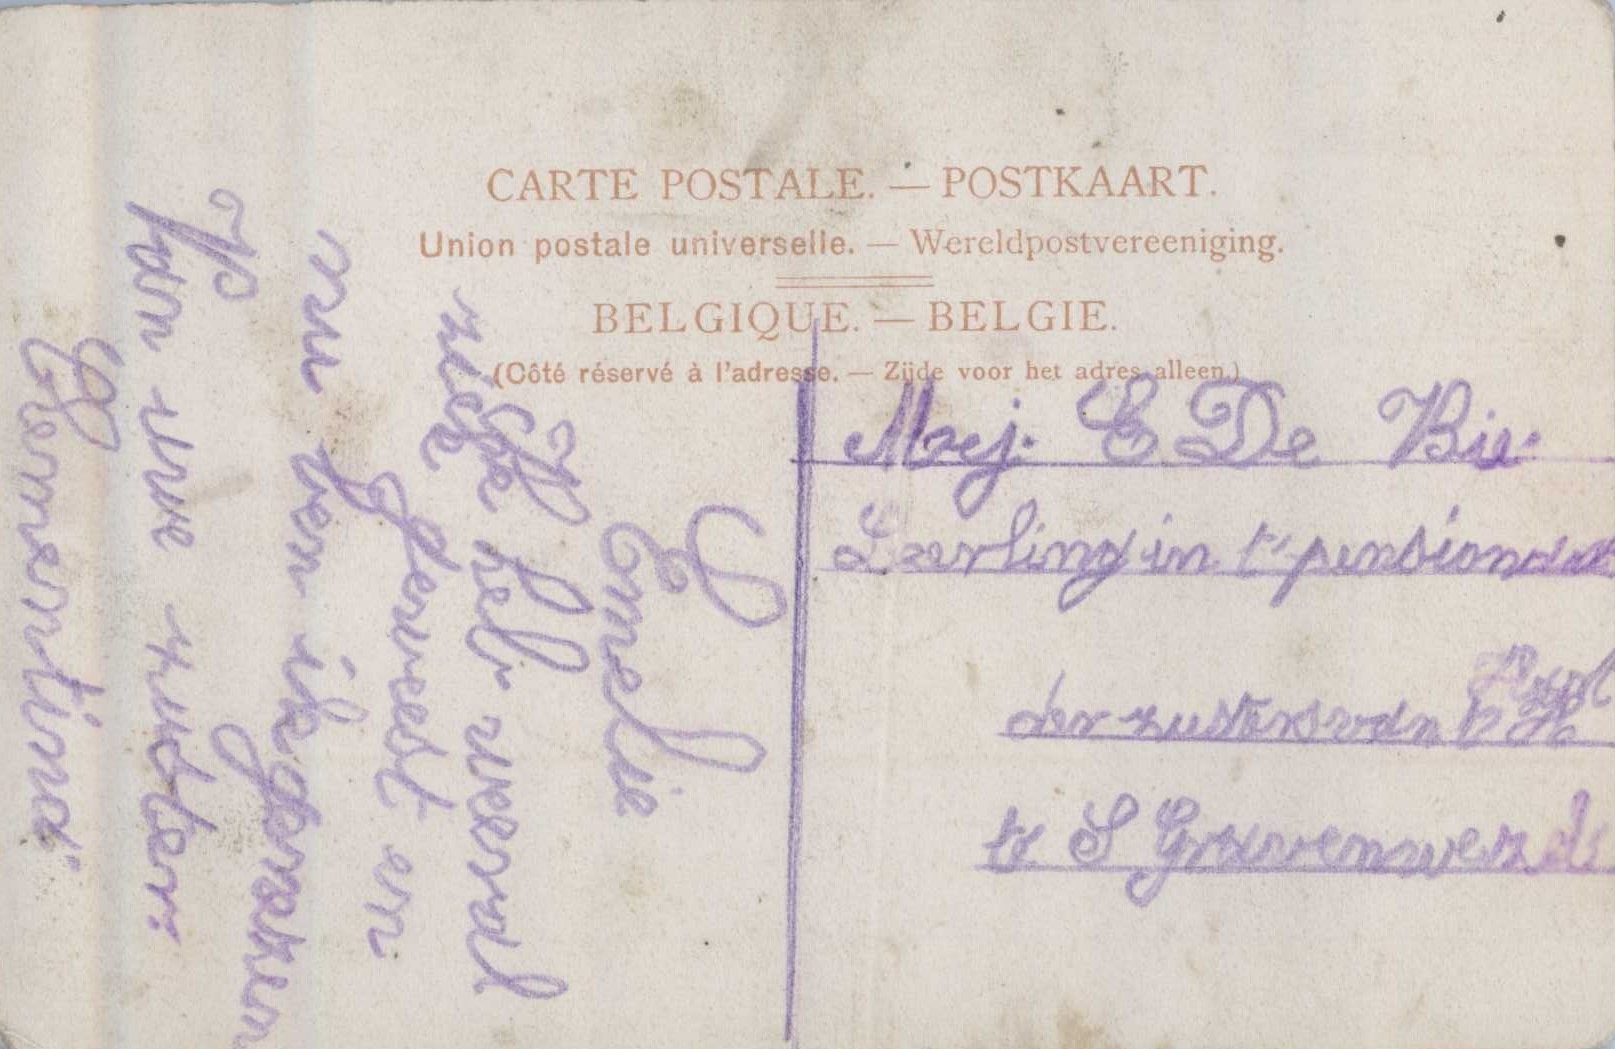 CARTE POSTALE. — POSTKAART.
Union postale universelle. — Wereldpostvereeniging.
BELGIQUE. — BELGIE.
(Côté réservé à l'adresse. — Zijde voor het adres alleen.)
Mej. E De Bie.
Leerling in t' pensionaat
der zusters van
te S Gravenwezel
Emelie
Ik heb overal
geweest en
nu ben ik
Van uwe zuster.
Clementina